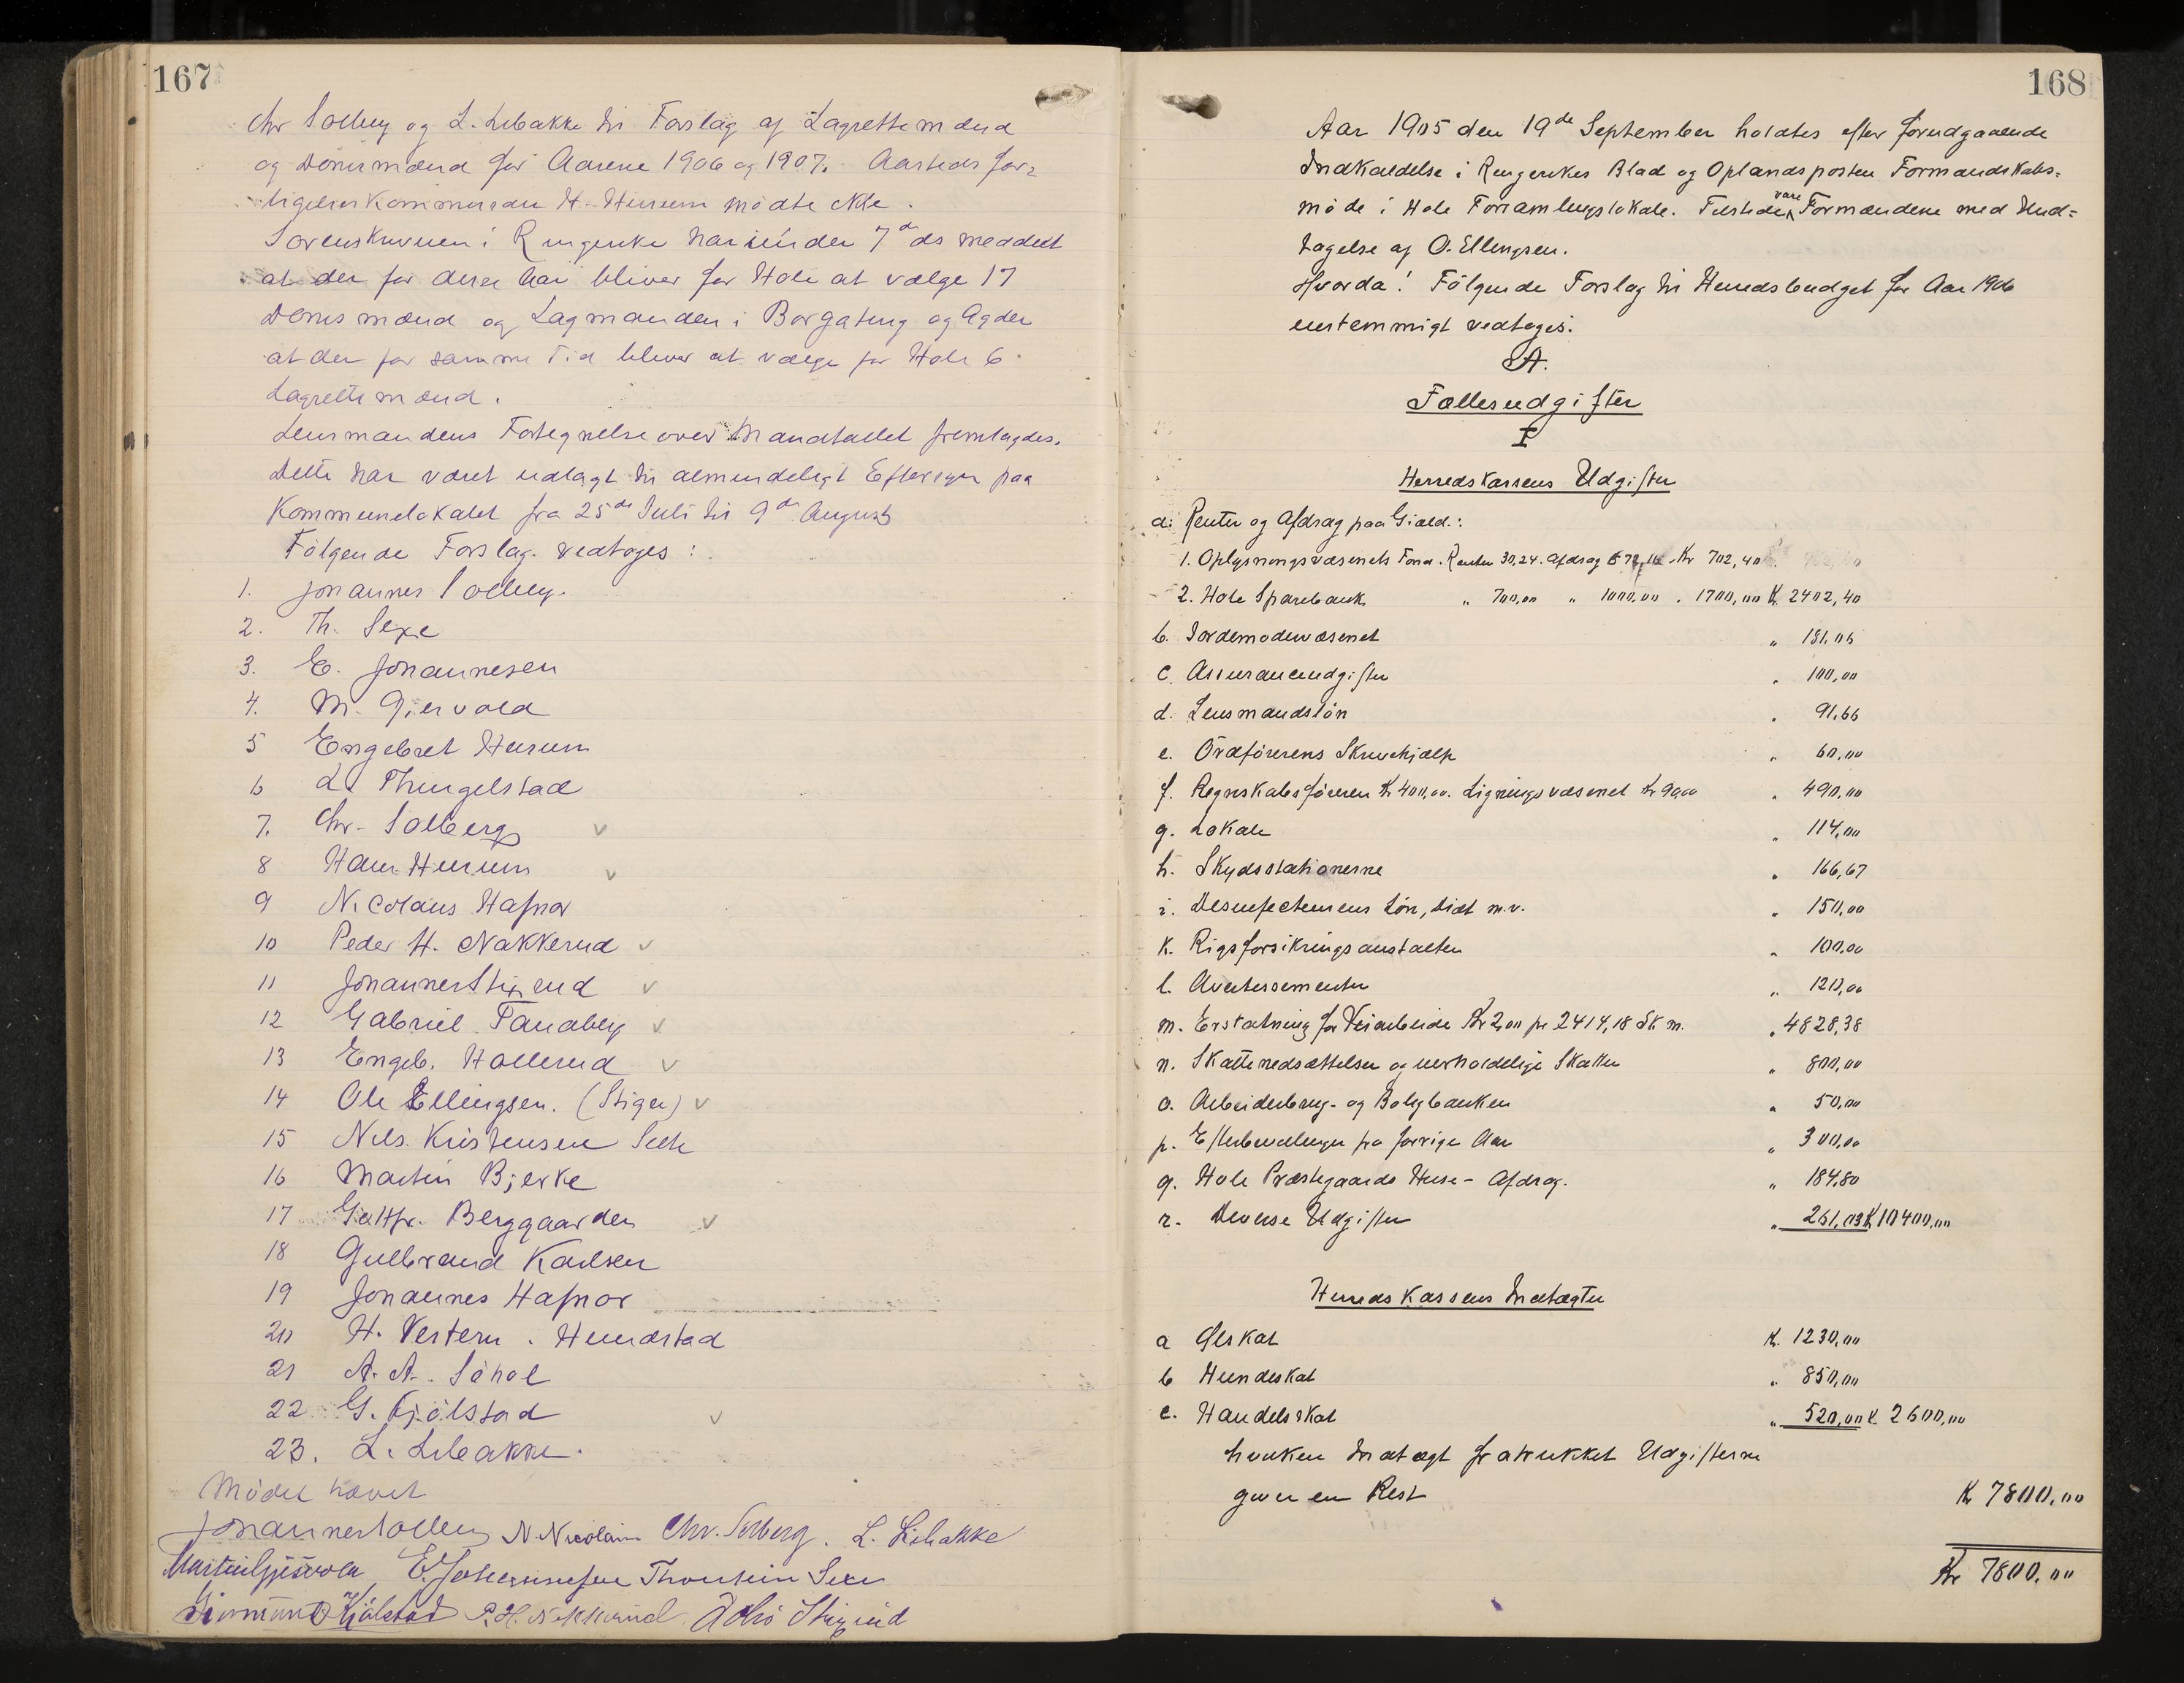 167
Chr Solberg og L. Libakke til Forslag af Lagrettemænd
og Domsmænd for Aarene 1906 og 1907.
H. Hurum mødte ikke.
Sorenskriveren i Ringerike har under 7de ds meddelt
at der for disse Aar bliver for Hole at vælge 17
Domsmænd og Lagmanden i Borgating og Agder
at der for samme Tid bliver at vælge for Hole 6
Lagrettemænd.
Lensmandens Fortegnelse over Mandtallet fremlagdes.
Dette har været udlagt til almindeligt Eftersyn paa
Kommunelokalet fra 25de Juli til 9de August
Følgende Forslag vedtoges:
1. Johannes Solberg.
2. Th. Sexe
3. E. Johannesen
4. M. Gjesvold
5 Engebret Hurum
6 L. Thingelstad
7. Chr. Solberg
8 Hans Hurum
9 Nicolaus Hafnor
10 Peder H. Nakkerud
11 Johannes Stixrud
12 Gabriel Tandberg
13 Engeb. Hollerud
14 Ole Ellingsen. (Stigen)
15 Nils Kristensen
16 Martin Bjerke
17 Berggaarden
18 Gulbrand Karlsen
19 Johannes Hafnor
20 H. Vestern. Hundstad
21 A. A. Søhol
22 G. Fjølstad
23. L. Libakke.
Mødet hævet
Johannes Solberg N. Nicolaisen Chr. Solberg. L. Libakke
Martin Gjesvold E. Johannesen Thorstein Sexe
P. H. Nakkerud Stixrud
168
Aar 1905 den 19de September holdtes efter forudgaaende
Indkaldelse i Ringerikes Blad og Oplandsposten Formandskabs=
møde i Hole Forsamlingslokale. Tilstede vare Formændene med Und=
tagelse af O. Ellingsen.
Hvorda! Følgende Forslag til Herredsbudget for Aar 1906
enstemmigt vedtoges:
A.
Fællesudgifter
I
Herredskassens Udgifter
a. Renter og Afdrag paa Gjæld.:
1. Oplysningsvæsenets Fond. Renter 30,24. Afdrag 672,16. Kr 702,40
2. Hole Sparebank " 700,00 " 1000,00 . 1700,00 Kr 2402,40
b. Jordemodervæsenet " 181.06
c. Assuranceudgifter " 100,00
d. Lensmandsløn " 91.66
e. Ordførerens Skrivehjælp " 60,00
f. Regnskabsføreren Kr 400,00. Ligningsvæsenet Kr 90,00 " 490,00
g. Lokale " 114,00
h. Skydsstationerne " 166,67
i. Desinfecteurens Løn, Diæt m.v. " 150,00
k. Rigsforsikringsanstalten " 100,00
l. Avertissementer " 120,00
m. Erstatning for Veiarbeide Kr 2,00 pr 2414,18 Sk m. " 4828,38
n. Skattenedsættelser og uerholdelige Skatter " 800,00
o. Arbeiderbrug- og Boligbanken " 50,00
p. Efterbevilninger fra forrige Aar " 300,00
q. Hole Præstegaards Huse - Afdrag. " 184,80
r. Diverse Udgifter " 261,03 Kr 10400,00
Herredskassens Indtægter
a Ølskat Kr. 1230,00
b Hundeskat " 850,00
c. Handelsskat " 520,00 Kr 2600,00
hvilken Indtægt fratrukket Udgifterne
giver en Rest Kr 7800,00
Kr 7800,00